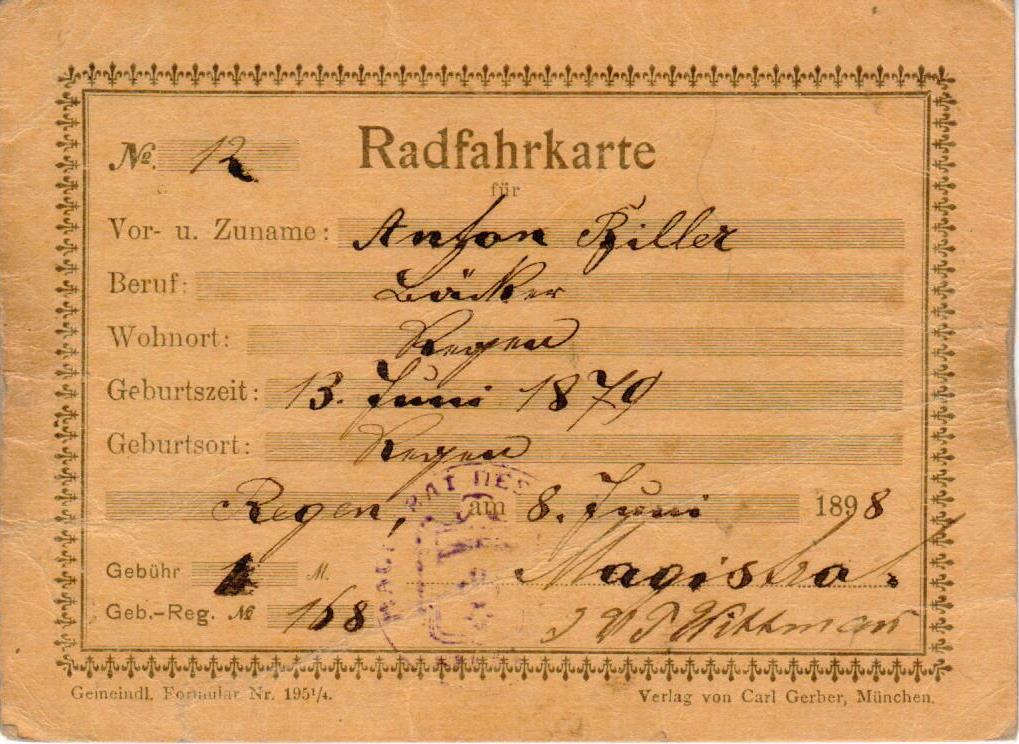 № 12 Radfahrkarte
für
Vor- u. Zuname: Anton Biller
Beruf: Bäcker
Wohnort: Regen
Geburtszeit: 13. Juni 1879
Geburtsort: Regen
Regen, am 8. Juni 1898
Gebühr 1 M. Magistrat
Geb.-Reg. № 168 Wittmann
RAT DES
Gemeindl. Formular Nr. 195¼.
Verlag von Carl Gerber, München.